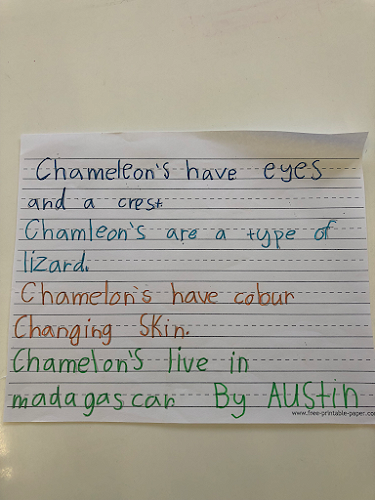 Chameleon's have eyes
and a crest
Chamleon's are a type of
lizard.
Chamelon's have colour
Changing Skin.
Chamelon's live in
madagascar By AUStin
www.free-printable-paper.co